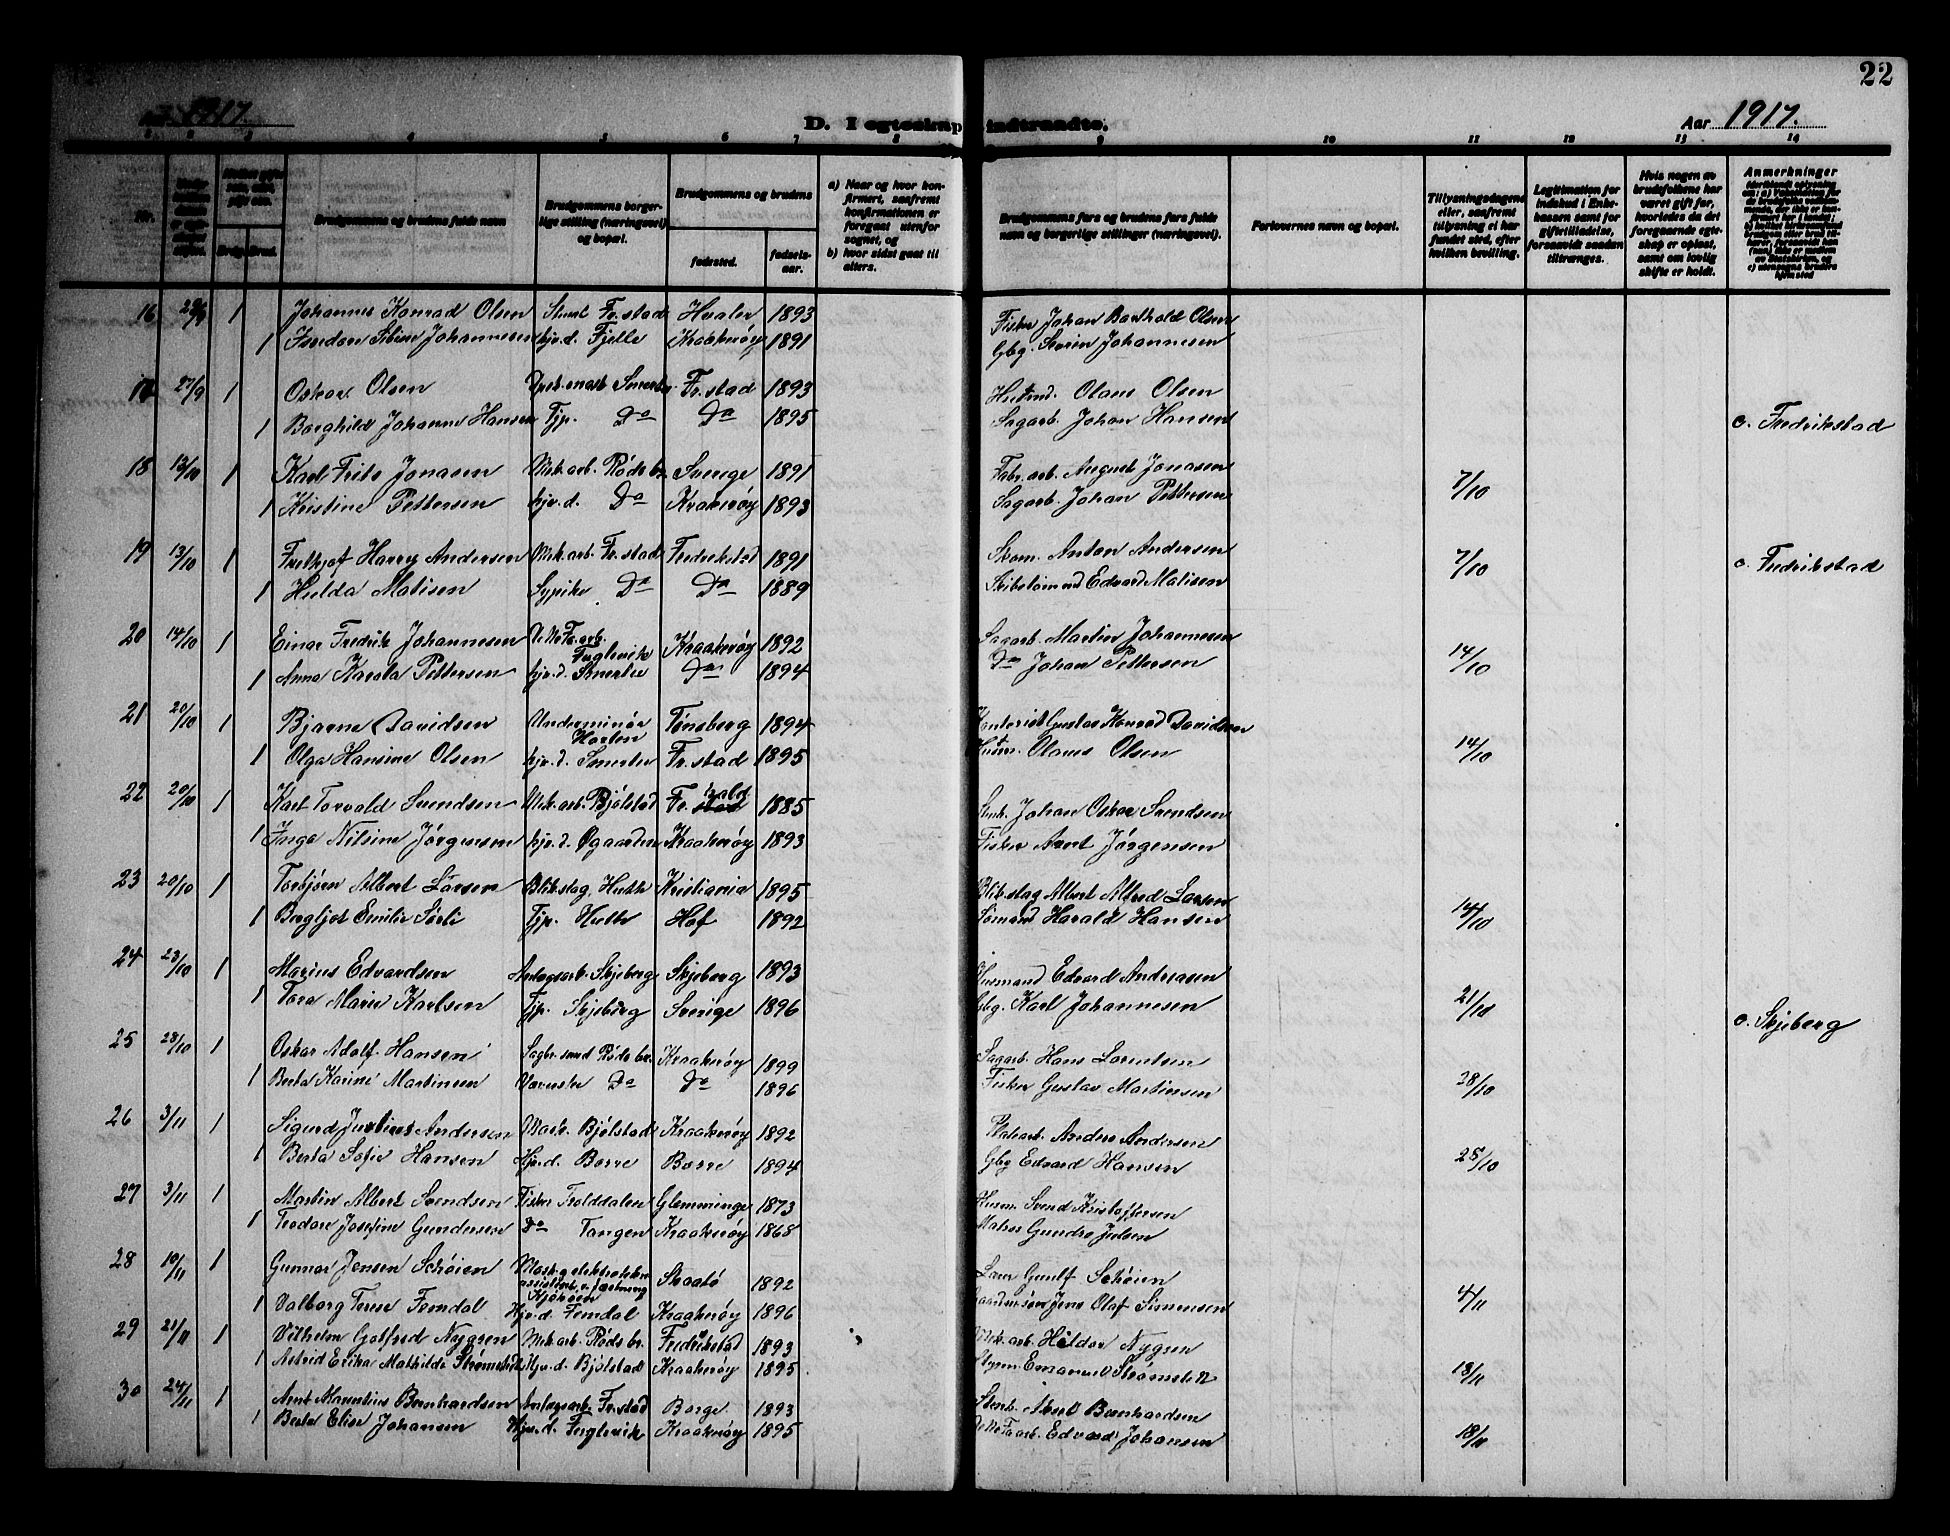 22
1917.
D. I egteskap indtraadte.
Aar 1917.
1 2 3 4 5 6 7 8 9 10 11 12 13 14
Nr.
Brudgommens og brudens fulde navn
Brudgommens borger-
lige stilling (næringsvei)
og bopæl.
Brudgommens og brudens
fødested.
fødsels-
aar.
a) Naar og hvor kon-
firmert, saafremt
konfirmationen er
foregaat utenfor
sognet, og
b) hvor sidst gaat til
alters.
Brudgommens fars og brudens fars fulde
navn og borgerlige stillinger (næringsvei).
Forlovernes navn og bopæl.
Tillysningsdagene
eller, saafremt
tillysning ei har
fundet sted, efter
hvilken bevilling.
Legitimation for
indskud i Enke-
kassen samt for
giftetilladelse,
forsaavidt saadan
tiltrænges.
Hvis nogen av
brudefolkene har
været gift før,
hvorledes da det
foregaaende egte-
skap er opløst,
samt om lovlig
skifte er holdt.
Anmerkninger
16 29/9 1 Johannes Konrad Olsen Stuert Fr.stad Hvaler 1893 Fisker Johan Barthold Olsen
1 Johannesen hjv.d. Fjelle Kraakerøy 1891 Gbg. Severin Johannesen
27/9 1 Oskar Olsen Fr.stad 1893 Olaus Olsen
1 Borghild Johanne Hansen Tjp. Do Do 1895 Sagarb. Johan Hansen c. Fredrikstad
18 13/10 1 Karl Frits Jonasen Mek.arb. Rødsbr. Sverige 1891 Fabr.arb. August Jonasen
1 Kristine Pettersen hjv.d. Do Kraakerøy 1893 Sagarb. Johan Pettersen 7/10
19 13/10 1 Frithjof Harry Andersen Mek.arb. Fr.stad Fredrikstad 1891 Skom. Anton Andersen
1 Hulda Matisen Sypike Do Do 1889 Skibstømmd Edvard Matisen 7/10 c. Fredrikstad
20 14/10 1 Einar Fredrik Johannesen De No Fa.arb. Fuglevik Kraakerøy 1892 Sagarb. Martin Johannesen
1 Anna Karola Pettersen hjv.d. Smertu Do 1894 Do Johan Pettersen 14/10
21 20/10 1 Bjarne Davidsen Underminør Horten Tønsberg 1894 Kontorist Gustav Konrad Davidsen
1 Olga Hansine Olsen hjv.d. Smertu Fr.stad 1895 Husm. Olaus Olsen 14/10
22 20/10 1 Karl Torvald Svendsen Mek.arb. Bjølstad Fr. 1885 Stenh. Johan Oskar Svendsen
1 Inga Nilsine Jørgensen hjv.d. Øgaarden Kraakerøy 1893 Fisker Arnt Jørgensen
23 20/10 1 Torbjørn Albert Larsen Blikslag. Kristiania 1895 Blikslag Albert Alfred Larsen
1 Bergljot Emilie Sørli Tjp. Hof 1892 Sømand Harald Hansen 14/10
24 23/10 1 Marius Edvardsen Anlægsarb. Skjeberg Skjeberg 1893 Husmand Edvard Andreasen
1 Tora Marie Karlsen Tjp. Skjeberg Sverige 1896 Gbg. Karl Johannesen 21/10 c. Skjeberg
25 28/10 1 Oskar Adolf Hansen Rødsbr. Kraakerøy 1899 Sagarb. Hans Lorentsen
1 Berta Karine Martinsen Væverske Do Do 1896 Fisker Gustav Martinsen 28/10
26 3/11 1 Sigurd Justinus Andersen Mask. Bjølstad Kraakerøy 1892 Andre Andersen
1 Berta Sofie Hansen Hjv.d. Borre Borre 1894 Gbg Edvard Hansen 25/10
27 3/11 1 Martin Albert Svendsen Fisker Trolddalen Glemminge 1873 Husm. Svend Kristoffersen
1 Teodora Josefine Gundersen Do Tangen Kraakerøy 1868 Matros Gundro Julsen
28 10/11 1 Gunnar Jensen Schøien Mask. g elektrotekn. Skaatø 1892 Schøien
1 Valborg Terese Femdal Hjv.d. Femdal Kraakerøy 1896 Gaardm.søn Jens Olaf Simensen 4/11
29 21/11 1 Vilhelm Gotfred Nygren Mek.arb. Rødsbr. Fredrikstad 1893 Mek.arb. Hildor Nygren
1 Astrid Erika Mathilde Strømstedt Hjv.d. Bjølstad Kraakerøy 1895 Styrm. Emanuel Strømstedt 13/11
30 24/11 1 Arnt Marentius Bernhardsen Anlægsarb. Fr.stad Borge 1893 Stenh. Aksel Bernhardsen
1 Berta Elise Johansen Hjv.d. Fuglevik Kraakerøy 1895 De No Fa arb. Edvard Johansen 18/11